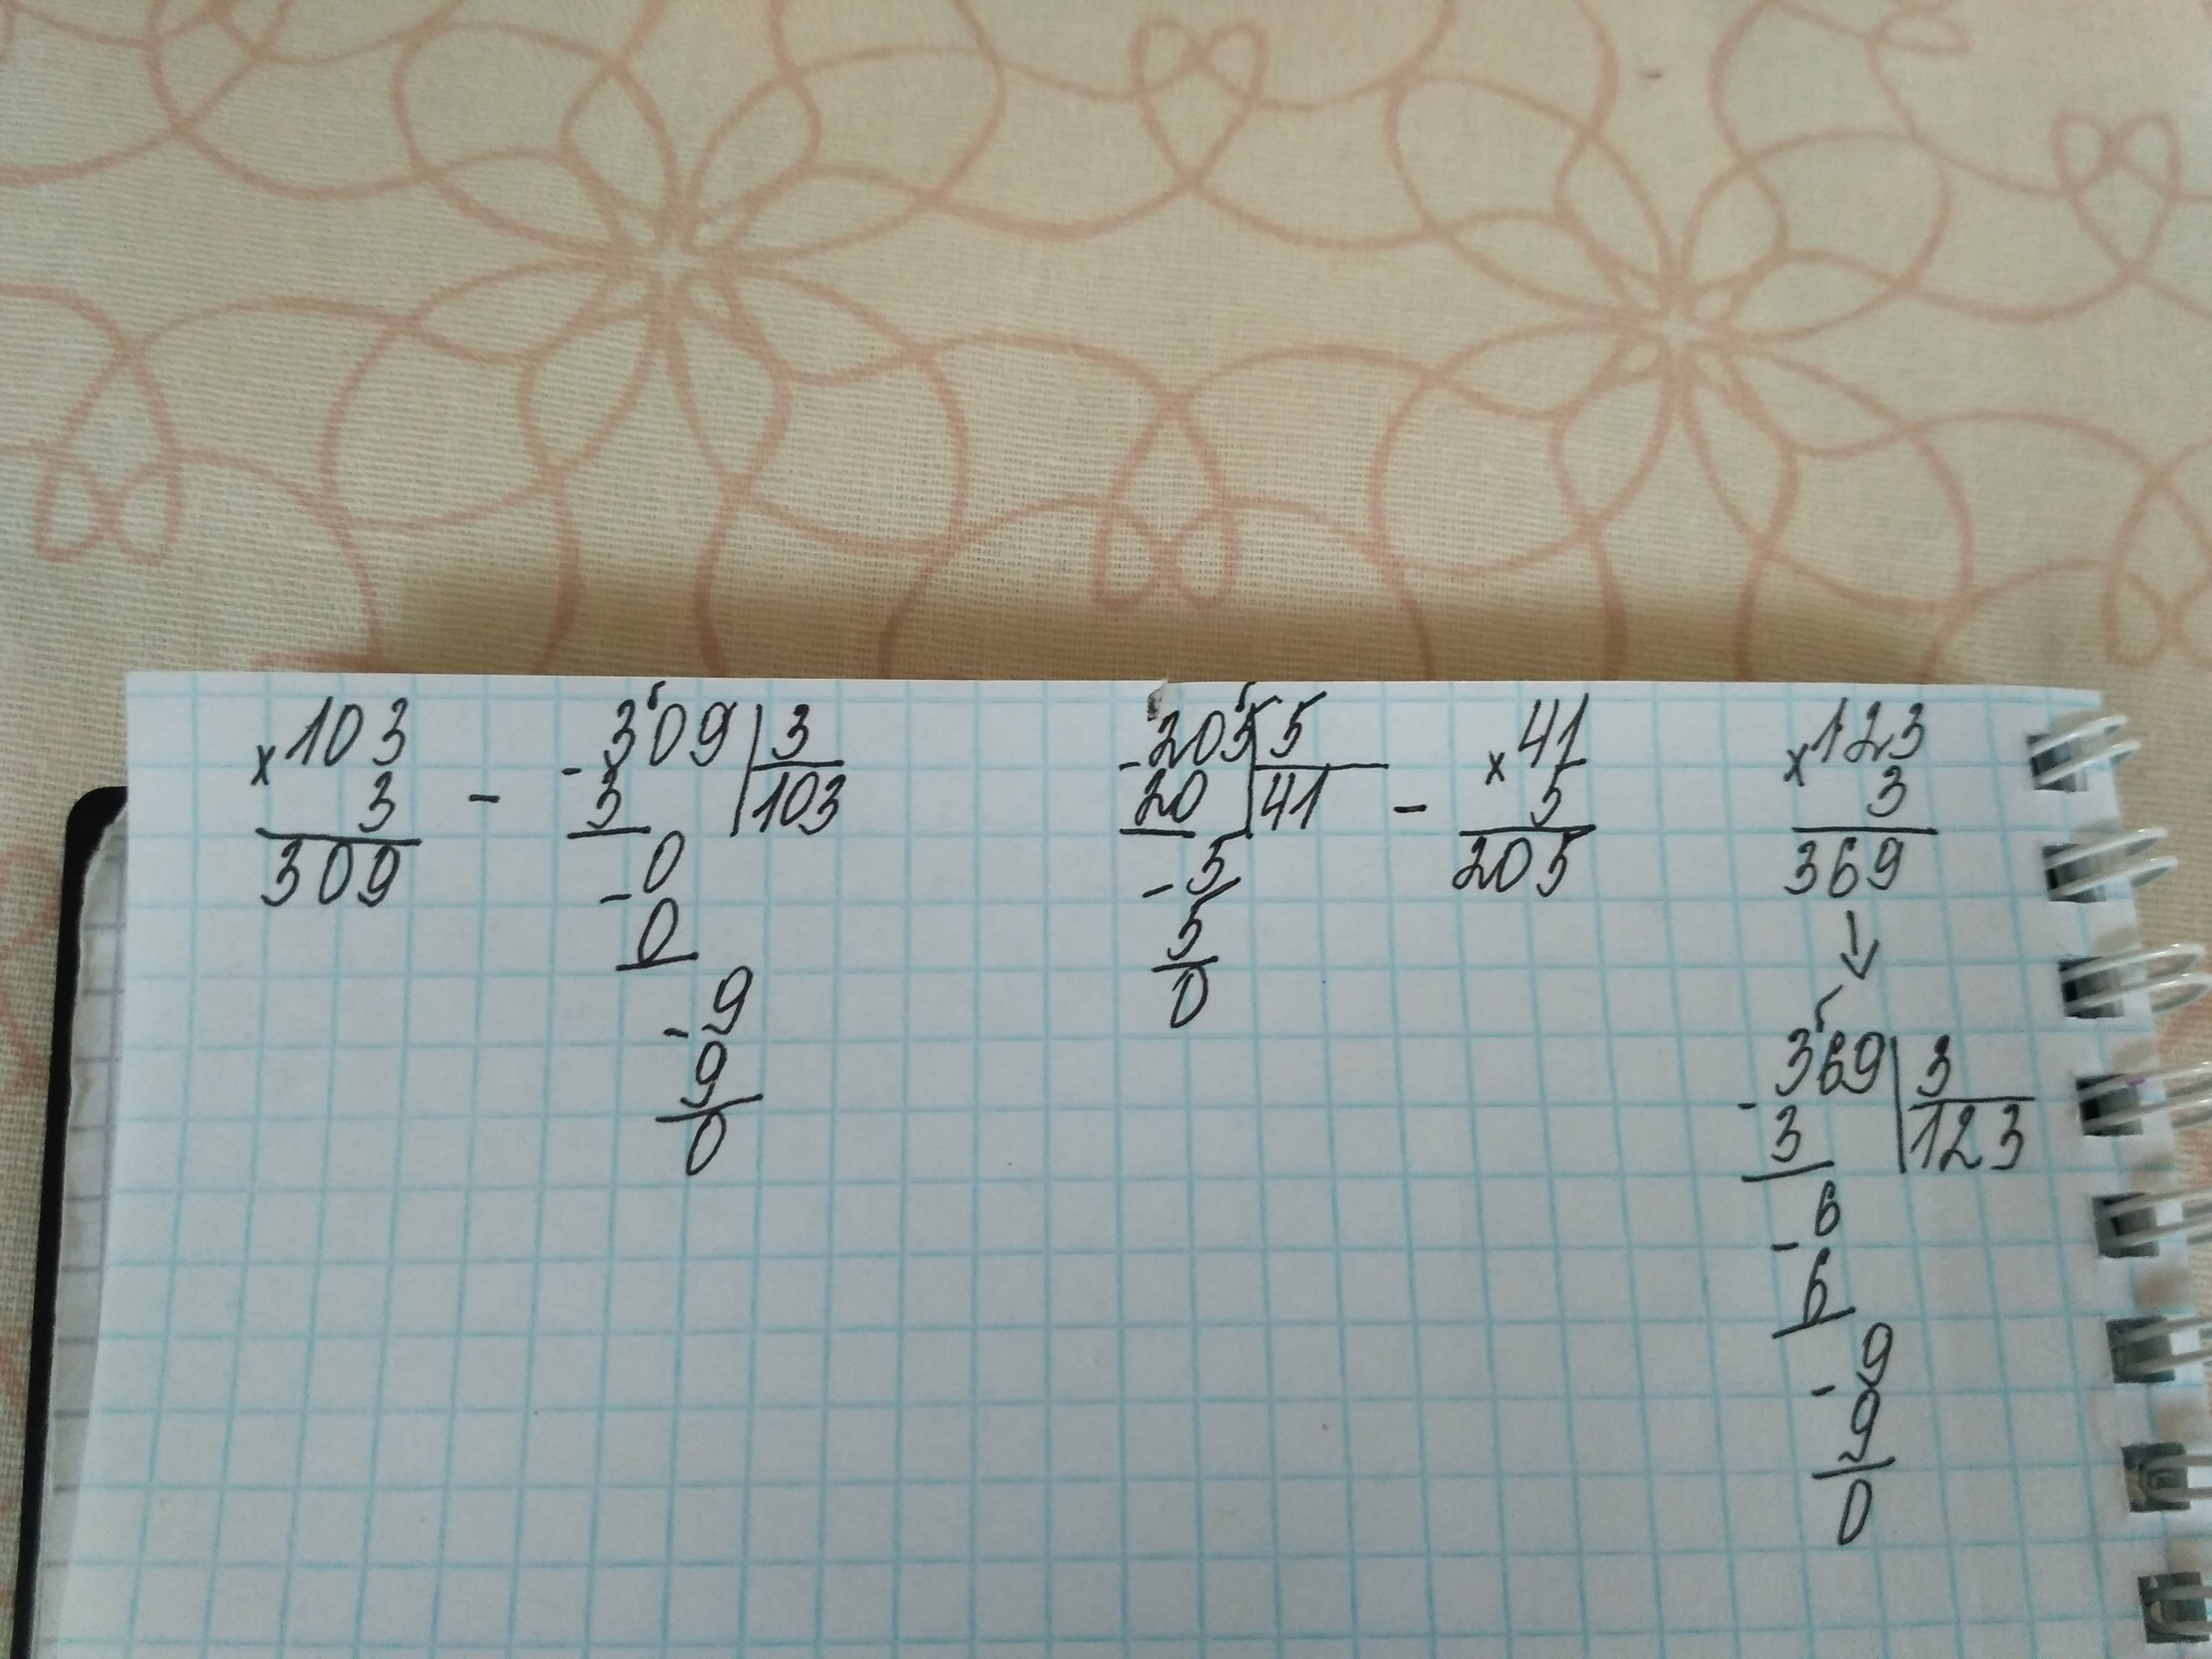 ×103
3
309
-
-309 3
3 103
0
-
0
9
-
9
0
-205 5
20 41
-5
5
0
-
×41
5
205
×123
3
369
↓
-369 3
3 123
6
-
6
9
-
9
0